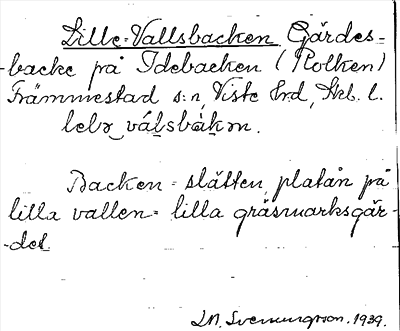 Lille-Vallsbacken Gärdes-
-backe på Idebacken (Polken)
Främmestad s:n, Viste hrd, Skb. l.
lebr válsbàkm.
Backen = slätten, platån på
lilla vallen = lilla gräsmarksgär-
-det.
J.N. Svenungsson. 1939.